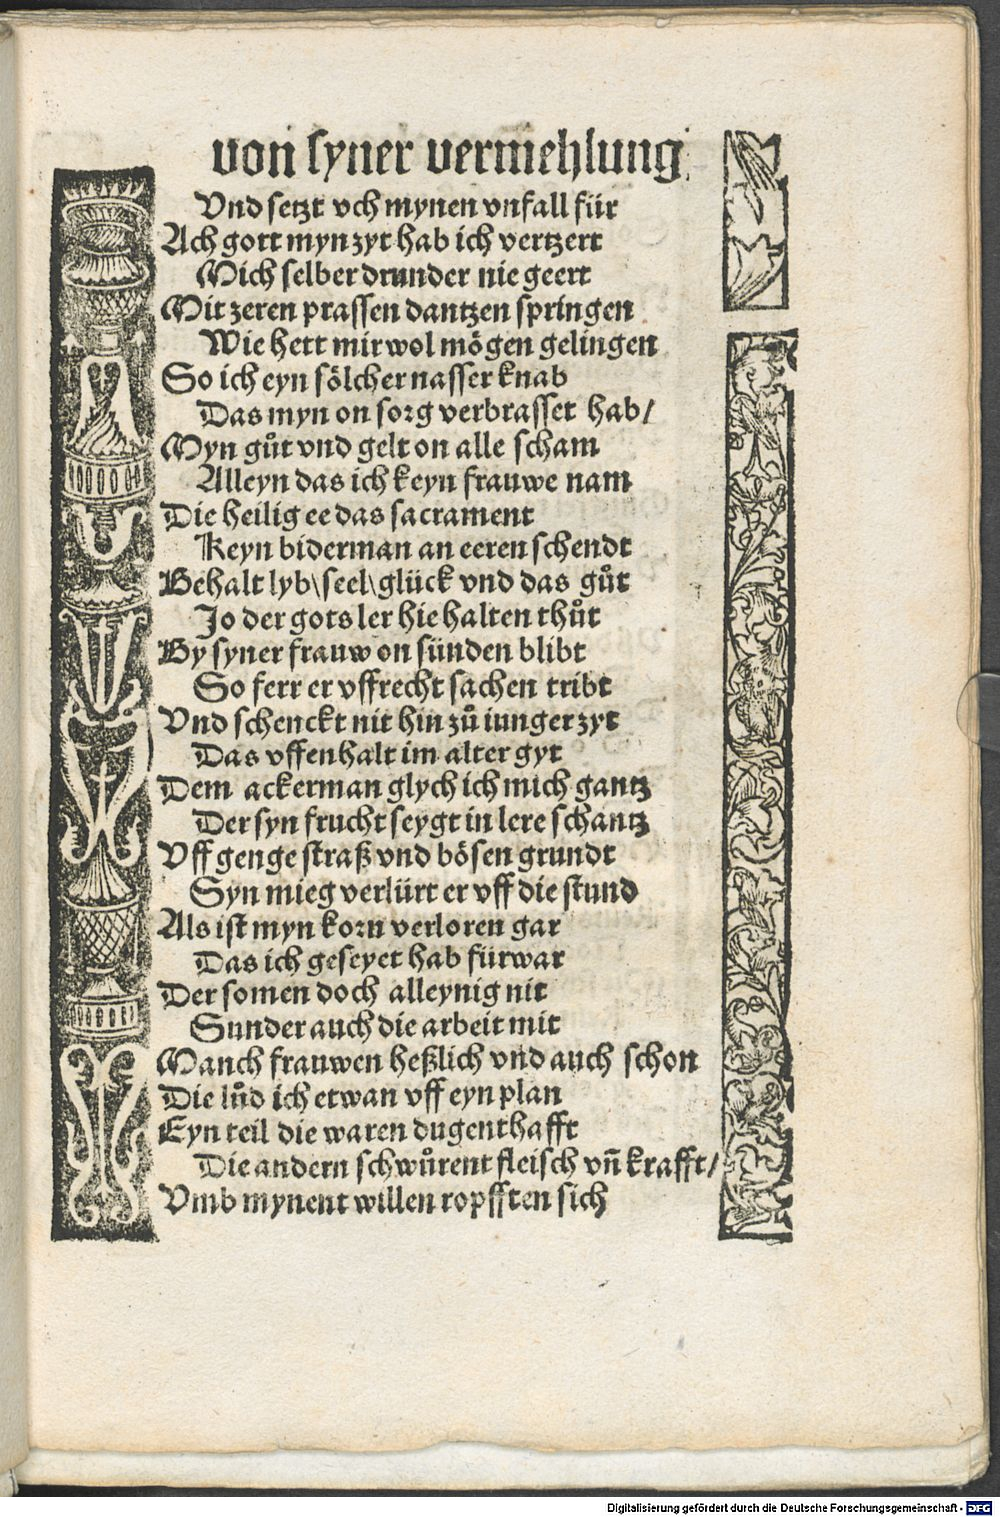 von syner vermehlung
Vnd setzt vch mynen vnfall für
Ach gott myn zyt hab ich vertzert
Mich selber drunder nie geert
Mit zeren prassen dantzen springen
Wie hett mir wol mögen gelingen
So ich eyn sölcher nasser knab
Das myn on sorg verbrasset hab/
Myn gůt vnd gelt on alle scham
Alleyn das ich keyn frauwe nam
Die heilig ee das sacrament
Keyn biderman an eeren schendt
Behalt lyb\seel\glück vnd das gůt
Jo der gots ler hie halten thůt
By syner frauw on sünden blibt
So ferr er vffrecht sachen tribt
Vnd schenckt nit hin zů iunger zyt
Das vffenhalt im alter gyt
Dem ackerman glych ich mich gantz
Der syn frucht seygt in lere schantz
Vff genge straß vnd bösen grundt
Syn mieg verlürt er vff die stund
Als ist myn korn verloren gar
Das ich geseyet hab fürwar
Der somen doch alleynig nit
Sunder auch die arbeit mit
Manch frauwen heßlich vnd auch schon
Die lůd ich etwan vff eyn plan
Eyn teil die waren dugenthafft
Die andern schwůrent fleisch vn̄ krafft/
Vmb mynent willen ropfften sich
Digitalisierung gefördert durch die Deutsche Forschungsgemeinschaft - DFG